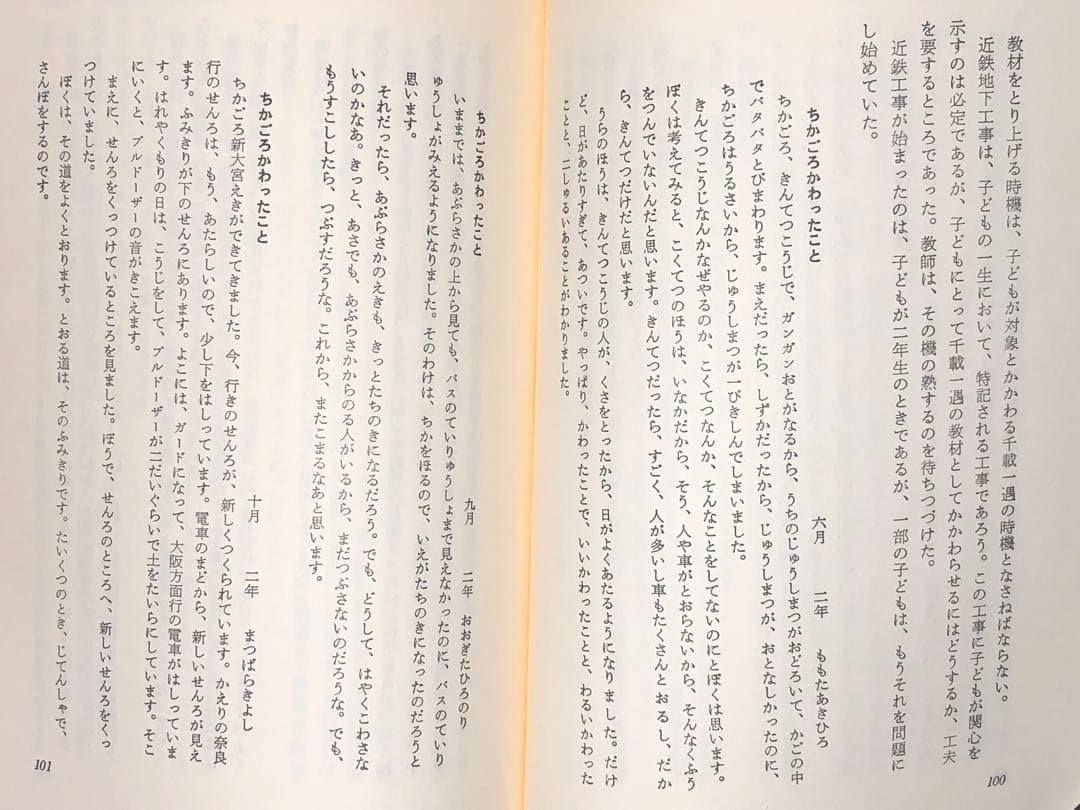 教材をとり上げる時機は、子どもが対象とかかわる千載一遇の時機となさねばならない。
近鉄地下工事は、子どもの一生において、特記される工事であろう。この工事に子どもが関心を
示すのは必定であるが、子どもにとって千載一遇の教材としてかかわらせるにはどうするか、工夫
を要するところであった。教師は、その機の熟するのを待ちつづけた。
近鉄工事が始まったのは、子どもが二年生のときであるが、一部の子どもは、もうそれを問題に
し始めていた。
ちかごろかわったこと
六月　二年　ももたあきひろ
ちかごろ、きんてつこうじで、ガンガンおとがなるから、うちのじゅうしまつがおどろいて、かごの中
でバタバタとびまわります。まえだったら、しずかだったから、じゅうしまつが、おとなしかったのに、
ちかごろはうるさいから、じゅうしまつが一ぴきしんでしまいました。
きんてつこうじなんかなぜやるのか、こくてつなんか、そんなことをしてないのにとぼくは思います。
ぼくは考えてみると、こくてつのほうは、いなかだから、そう、人や車がとおらないから、そんなくふう
をつんでいないんだと思います。きんてつだったら、すごく、人が多いし車もたくさんとおるし、だか
ら、きんてつだけだと思います。
うらのほうは、きんてつこうじの人が、くさをとったから、日がよくあたるようになりました。だけ
ど、日があたりすぎて、あついです。やっぱり、かわったことで、いいかわったことと、わるいかわった
ことと、二しゅるいあることがわかりました。
100
ちかごろかわったこと
九月　二年　おおぎたひろのり
いままでは、あぶらさかの上から見ても、バスのていりゅうしょまで見えなかったのに、バスのていり
ゅうしょがみえるようになりました。そのわけは、ちかをほるので、いえがたちのきになったのだろうと
思います。
それだったら、あぶらさかのえきも、きっとたちのきになるだろう。でも、どうして、はやくこわさな
いのかなあ。きっと、あさでも、あぶらさかからのる人がいるから、まだつぶさないのだろうな。でも、
もうすこししたら、つぶすだろうな。これから、またこまるなあと思います。
ちかごろかわったこと
十月　二年　まつばらきよし
ちかごろ新大宮えきができてきました。今、行きのせんろが、新しくつくられています。かえりの奈良
行のせんろは、もう、あたらしいので、少し下をはしっています。電車のまどから、新しいせんろが見え
ます。ふみきりが下のせんろにあります。よこには、ガードになって、大阪方面行の電車がはしっていま
す。はれやくもりの日は、こうじをして、ブルドーザーが二だいぐらいで土をたいらにしています。そこ
にいくと、ブルドーザーの音がきこえます。
まえに、せんろをくっつけているところを見ました。ぼうで、せんろのところへ、新しいせんろをくっ
つけていました。
ぼくは、その道をよくとおります。とおる道は、そのふみきりです。たいくつのとき、じてんしゃで、
さんぽをするのです。
101